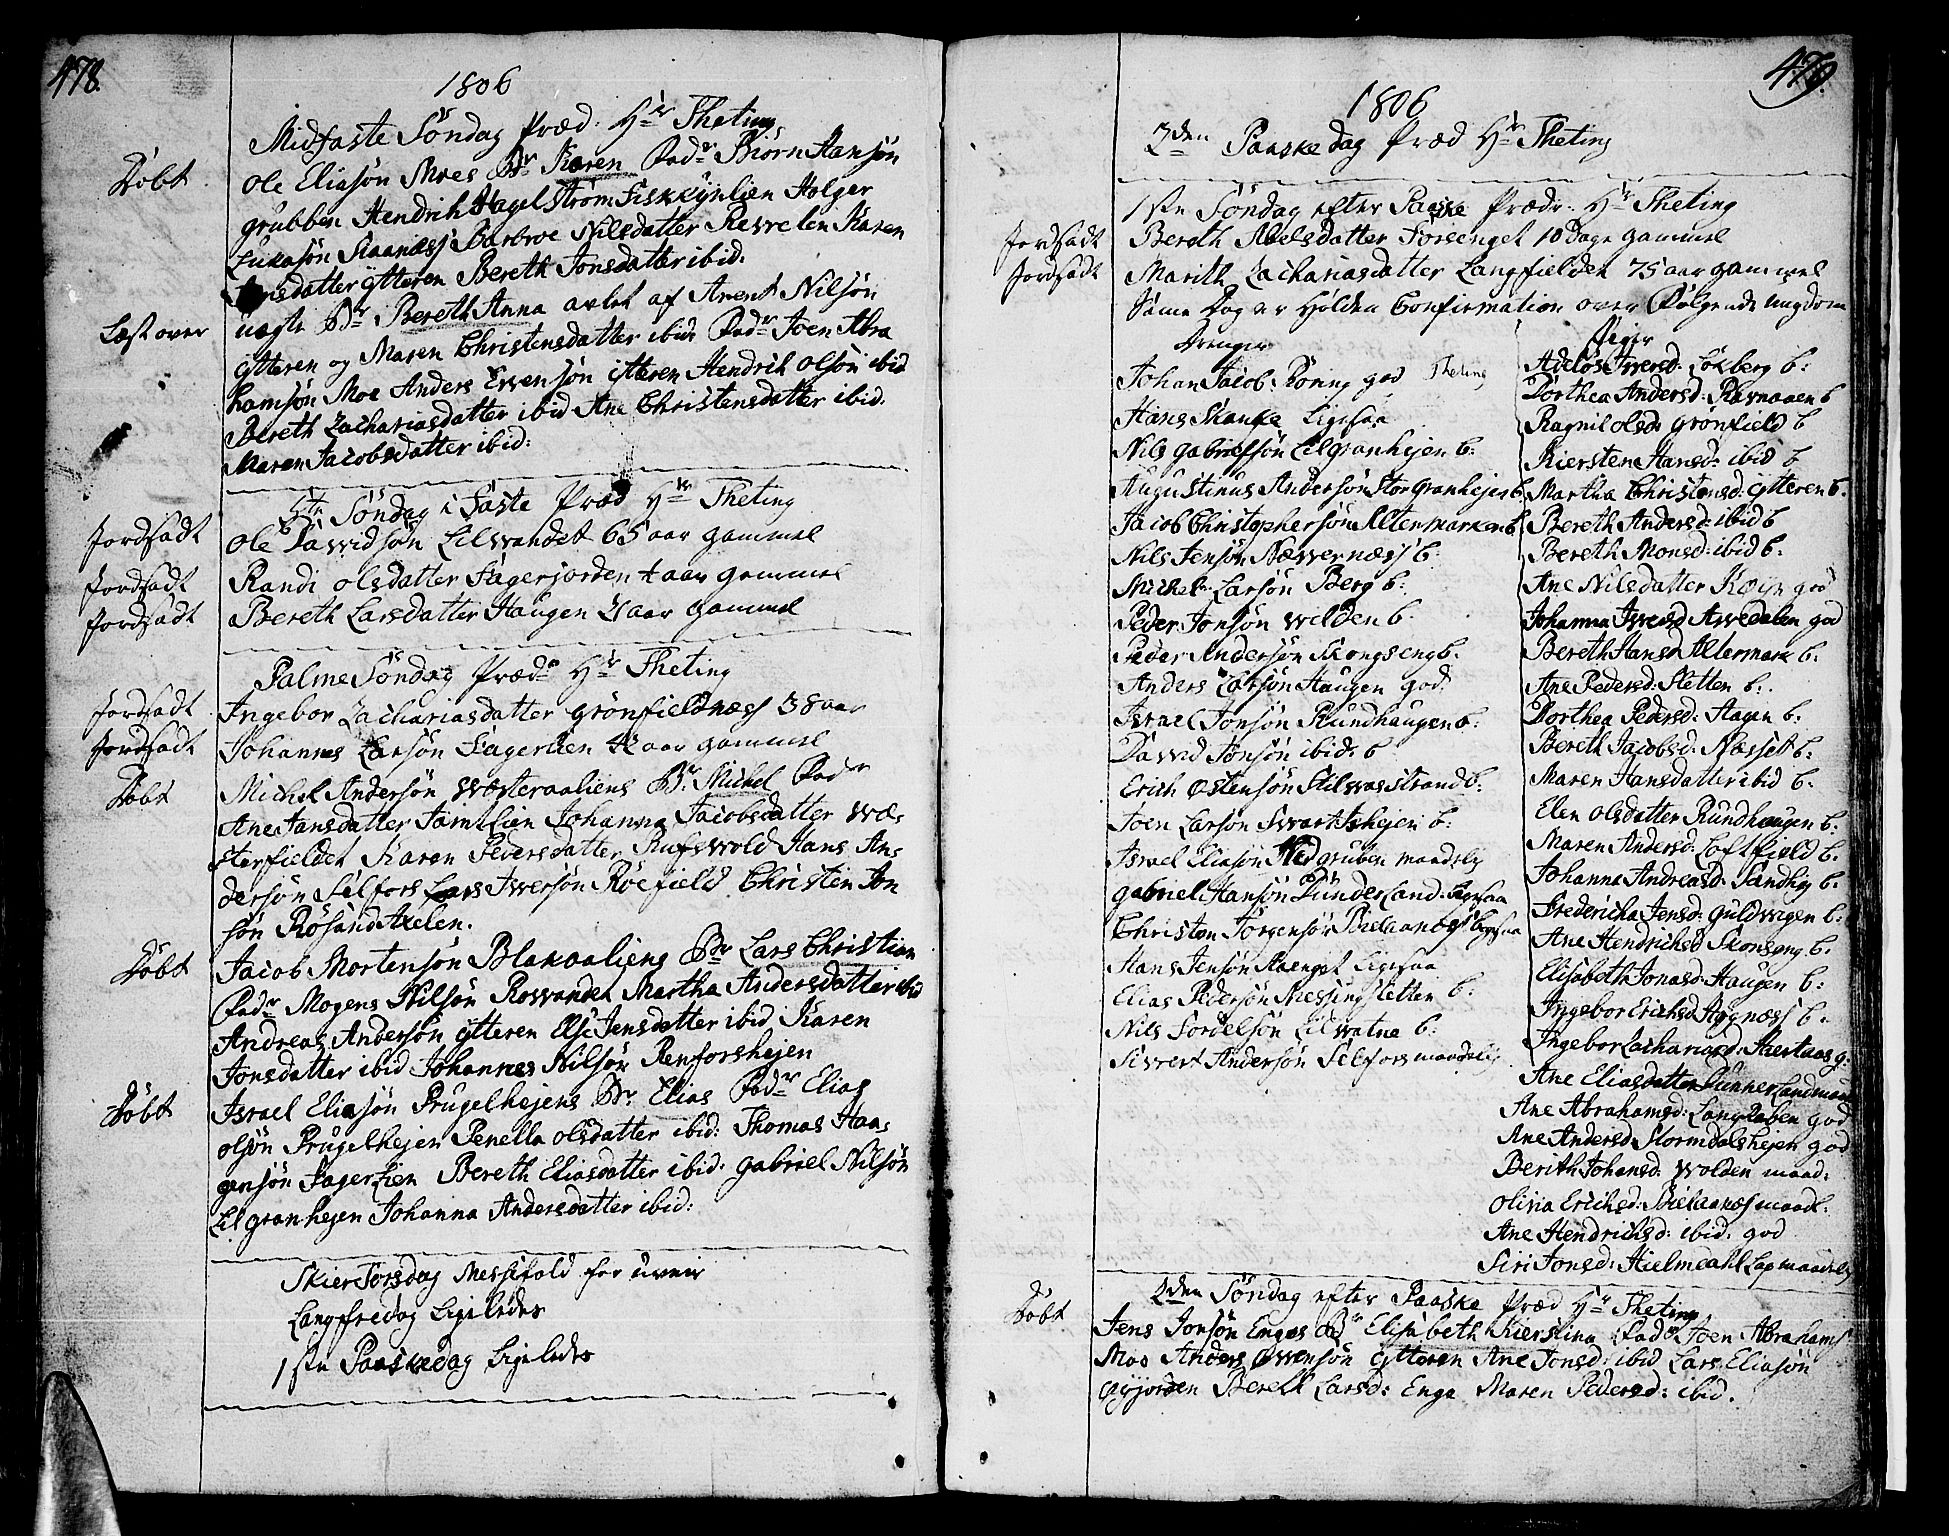 478.
1806
Midfaste Söndag Præd. Hr Theting
Döbt
Ole Eliasön Moes Br Karen Fadr Biörn Hansön
grubben Hendrik Hagelström Fiskkynlien Holger
Lukasön Raanæss Barbroe Nilsdatter Revrelien Karen
datter ytteren Bereth Jonsdatter ibid:
Læst over
uægte Br Bereth Anna avlet af Arent Nilsön
ytteren og Maren Christensdatter ibid: Fadr Joen Abra
hamsön Moe Anders Evensön ytteren Hendrik olsön ibid
Bereth Zachariasdatter ibid Ane Christensdatter ibid.
Maren Jacobsdatter ibid:
5te Söndag i Faste Præd Hr Theting
Jordfadt
Ole Davidsön Lilvandet 65 aar gammel
Jordfadt
Randi olsdatter Fagerjorden aar gammel
Jordfadt
Bereth Larsdatter Haugen aar gammel
Palme Söndag Præd. Hr Theting
Jordfadt
Ingebor Zachariasdatter grönfieldnæss 38 aar
Jordfadt
Johannes Larsön Fagerlien aar gammel
Döbt
Michel Andersön Westeraaliens Br Michel Fadr
Ane Jansdatter Jamtlien Johanna Jacobsdatter wæ,
sterfieldet Karen Pedersdatter Rufswold Hans An,
dersön Selfors Lars Iversön Röefield Christen Jon
sön Rösand Axelen.
Döbt
Jacob Mortensön Blakaaliens Br Lars Christian
Fadr Mogens Nilsön Rosvandet Martha Andersdatter ibid
Andreas Andersön ytteren Else Jensdatter ibid Karen
Jonsdatter ibid Johannes Nilsön Renforshejen
Döbt
Israel Eliasön Prugelhejens Br Elias Fadr Elias
olsön Prugelhejen Penella olsdatter ibid: Thomas Haa,
gensön Fagerlien Bereth Eliasdatter ibid: gabriel Nilsön
Lilgranhejen Johanna Andersdatter ibid:
Skier Torsdag Messefald for uveir
Langfredag ligeledes
1ste Paaskedag ligeledes
479.
1806
2den Paaske dag Præd Hr Theting
1ste Söndag efter Paaske Prædr. Hr Theting
Jordfadt
Bereth Abelsdatter Forsenget 10 Dage gammel
Jordfadt
Marith Zachariasdatter Langfieldet 75 aar gammel
Samme Dag er holden Confirmation over Fölgende ungdom
Drenger
Johan Jacob: Röring god Theting
Hans Skanke Ligesaa
Nils gabrielsön Lilgranhejen b:
Augustinus Andersön Storgranhejen b.
Jacob Christophersön Altermarken b
Nils Jensön Næwernæss b:
Michel Larsön Berg b:
Peder Jonsön welden b.
Peder Andersön Skongseng b.
Anders Larsön Haugen god.
Israel Jonsön Rundhaugen b:
David Jonsön ibid: b
Erich Östensön Stilwasstrand b:
Joen Larsön Swartishejen b:
Israel Eliasön gruben maadelig
gabriel Hansön Dunderland: Ligesaa
Christen Jörgensön Bielaanæss ligesaa
Hans Jensön Ligesaa
Elias Pedersön Messingsletten b:
Nils Fordelsön Lilvatne b:
Sivert Andersön Selfors maadelig
Piger
Adelös Iversd: Lökberg b:
Dorthea Andersd: Ravnaaen b
Ragnil olsd: grönfield b
Kiersten Hansd: ibid b
Martha Christensd: ytteren b.
Bereth Andersd: ibid b
Bereth Monsd: ibid b.
Ane Nilsdatter god
Johanna Iversd god
Bereth Hansd Altermark b.
Ane Pedersd: Sletten b:
Dorthea Pedersd: Hagen b.
Bereth Jacobsd: Næsset b:
Maren Hansdatter ibid b.
Elen olsdatter Rundhaugen b:
Maren Andersd: Loftfield b.
Johanna Andreasd: Sandhey b.
Fredericha Jensd: guldvigen b:
Ane Hendrichsd Skonseng b.
Elisabeth Jonasd: Haugen b:
Ingebor Erichsd Högnæss b.
Ingebor Zachariasd: g:
Ane Eliasdatter Dunnerland maad
Ane Abrahamsd: god
Ane Andersd Stormdalshejen god
Berith Johansd: Wolden maad:
Olivia Erichsd: Bielaanæs maad:
Ane Hendrichsd: ibid: god
Siri Jonsd: Hielmdahl Lap maadelig
2den Söndag efter Paaske Præd Hr Theting
Döbt
Jens Jonsön Enges Br Elisabeth Kierstina Fadr Joen Abrahams
Moe Anders Evensön ytteren Ane Jonsd: ibid Lars Eliasön
Öyjorden Bereth Larsd: Enge Maren Pedersd: ibid.